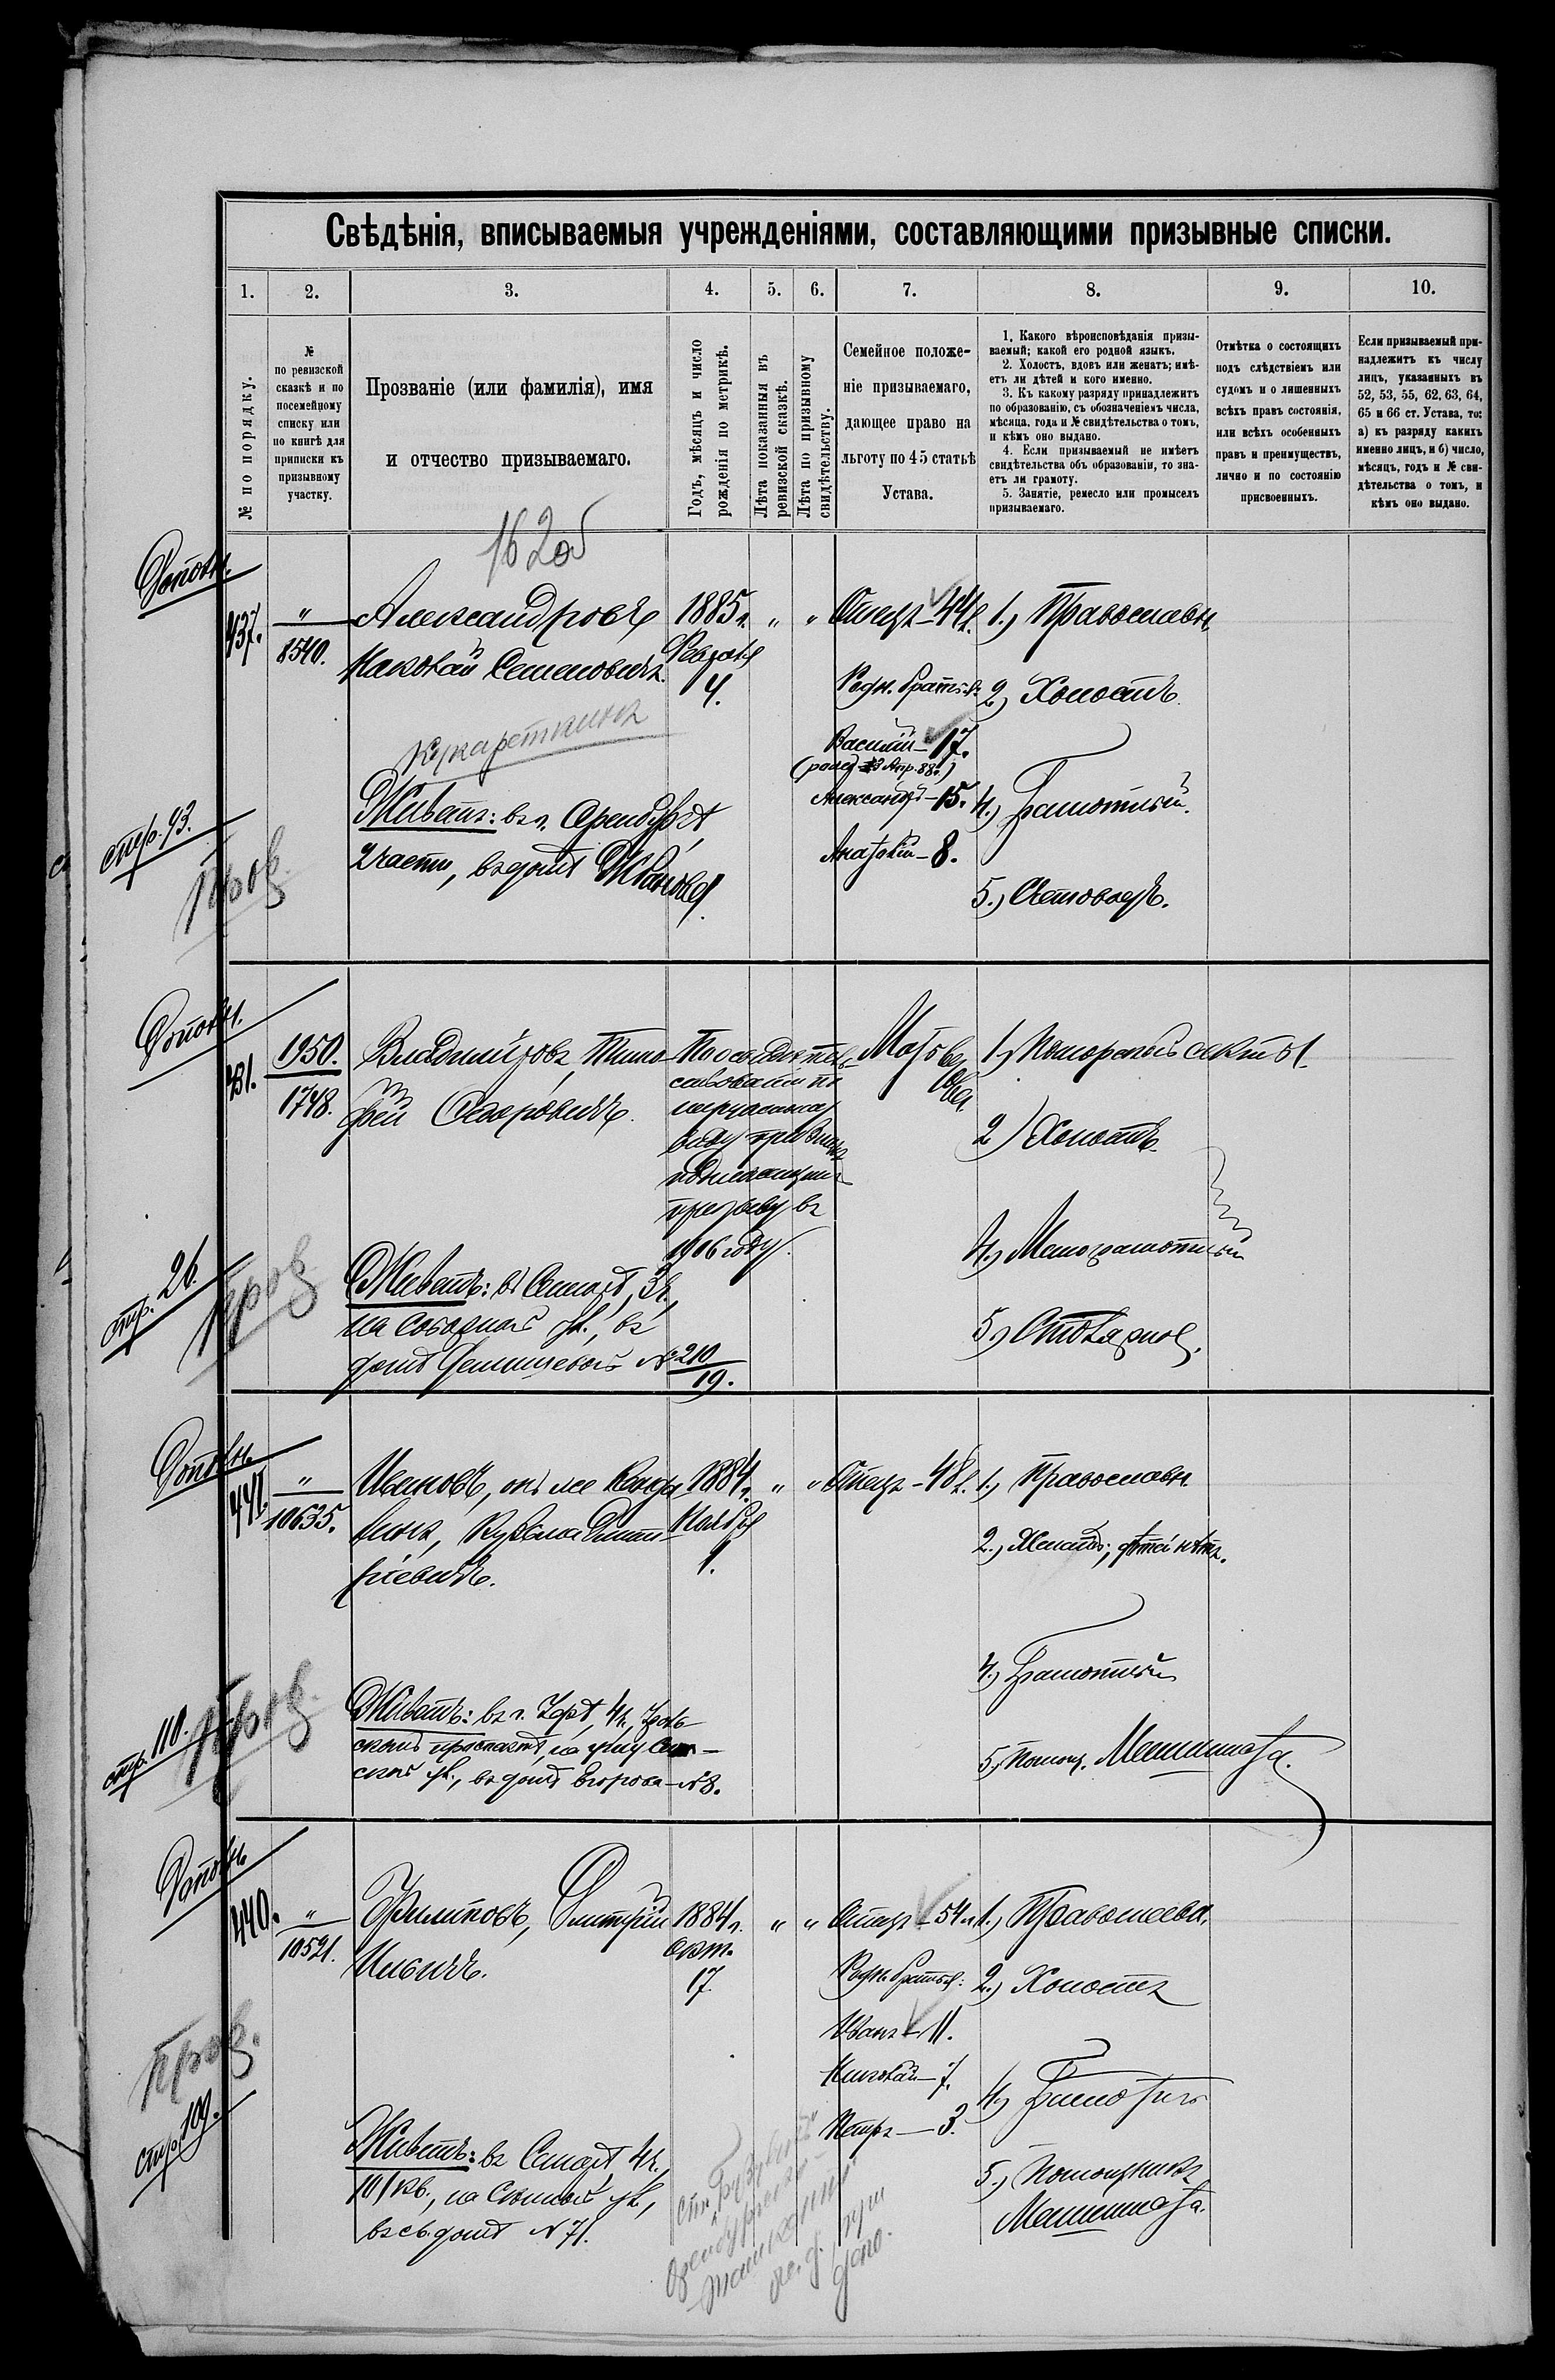 Свѣдѣнія, вписываемыя учрежденіями, составляющими призывные списки.
1. 2. 3. 4. 5. 6. 7. 8. 9. 10.
№ по порядку.
№
по ревизской
сказкѣ и по
посемейному
списку или
по книгѣ для
приписки къ
призывному
участку.
Прозваніе (или фамилія), имя
и отчество призываемаго.
Годъ, мѣсяцъ и число
рожденія по метрикѣ.
Лѣта показанныя въ
ревизской сказкѣ.
Лѣта по призывному
свидѣтельству.
Семейное положе-
ніе призываемаго,
дающее право на
льготу по 45 статьѣ
Устава.
1. Какого вѣроисповѣданія призы-
ваемый; какой его родной языкъ.
2. Холостъ, вдовъ или женатъ; имѣ-
етъ ли дѣтей и кого именно.
3. Къ какому разряду принадлежитъ
по образованію, съ обозначеніемъ числа,
мѣсяца, года и № свидѣтельства о томъ,
и кѣмъ оно выдано.
4. Если призываемый не имѣетъ
свидѣтельства объ образованіи, то зна-
етъ ли грамоту.
5. Занятіе, ремесло или промыселъ
призываемаго.
Отмѣтка о состоящихъ
подъ слѣдствіемъ или
судомъ и о лишенныхъ
всѣхъ правъ состоянія,
или всѣхъ особенныхъ
правъ и преимуществъ,
лично и по состоянію
присвоенныхъ.
Если призываемый при-
надлежитъ къ числу
лицъ, указанныхъ въ
52, 53, 55, 62, 63, 64,
65 и 66 ст. Устава, то:
а) къ разряду какихъ
именно лицъ, и б) число,
мѣсяцъ, годъ и № сви-
дѣтельства о томъ, и
кѣмъ оно выдано.
162об
Дополн.
437.
"
8540.
Александровъ
Николай Семеновичъ.
1885 г.
Февраля
4.
" "
Отецъ - 44 л.
Родн. братья:
Василій - 17.
Александръ - 15.
Анатолій - 8.
1.) Православн.
2.) Холостъ.
4.) Грамотный.
5.) Счетоводъ.
Живетъ: въ г. Оренбургѣ,
2 части, въ домѣ
стр. 93.
Пров.
Дополн.
1950.
1748.
Владиміровъ, Тимо
фей
По освидѣтель-
ствованіи по
наружному
виду признанъ
подлежащимъ
призыву въ
1906 году.
1.) Поморской секты.
2.) Холостъ.
4.) Малограмотный
5.) Столярное.
Живетъ: въ Самарѣ, 3 ч.,
на Соборной ул., въ
домѣ № 210
19.
стр. 26.
Пров.
Дополн.
441.
"
10635.
Ивановъ, онъ же
Кузьма Дмит-
ріевичъ.
1884 г.
Ноября
1.
" "
Отецъ - 48 л.
1.) Православн.
2.) Женатъ; дѣтей нѣтъ.
4.) Грамотный
5.) Помощ. Машиниста.
Живетъ: въ г. Уфѣ, 4 ч.,
проспектѣ, на углу
ской ул., въ домѣ Егорова - № 8.
стр. 110.
Пров.
Дополн
440.
"
10521.
Филиповъ, Дмитрій
Ильичъ.
1884 г.
Окт.
17.
" "
Отецъ - 54 л.
Родн. братья:
Иванъ - 11.
Николай - 7.
Петръ - 3.
1.) Православн.
2.) Холостъ
4.)
5.) Помощникъ
Машиниста.
Живетъ: въ Самарѣ, 4 ч.,
101 кв., на Сѣнной ул.,
въ св. домѣ № 71.
Пров.
стр. 109.
Оренбургско-
Ташкентской
ж. д. при
депо.